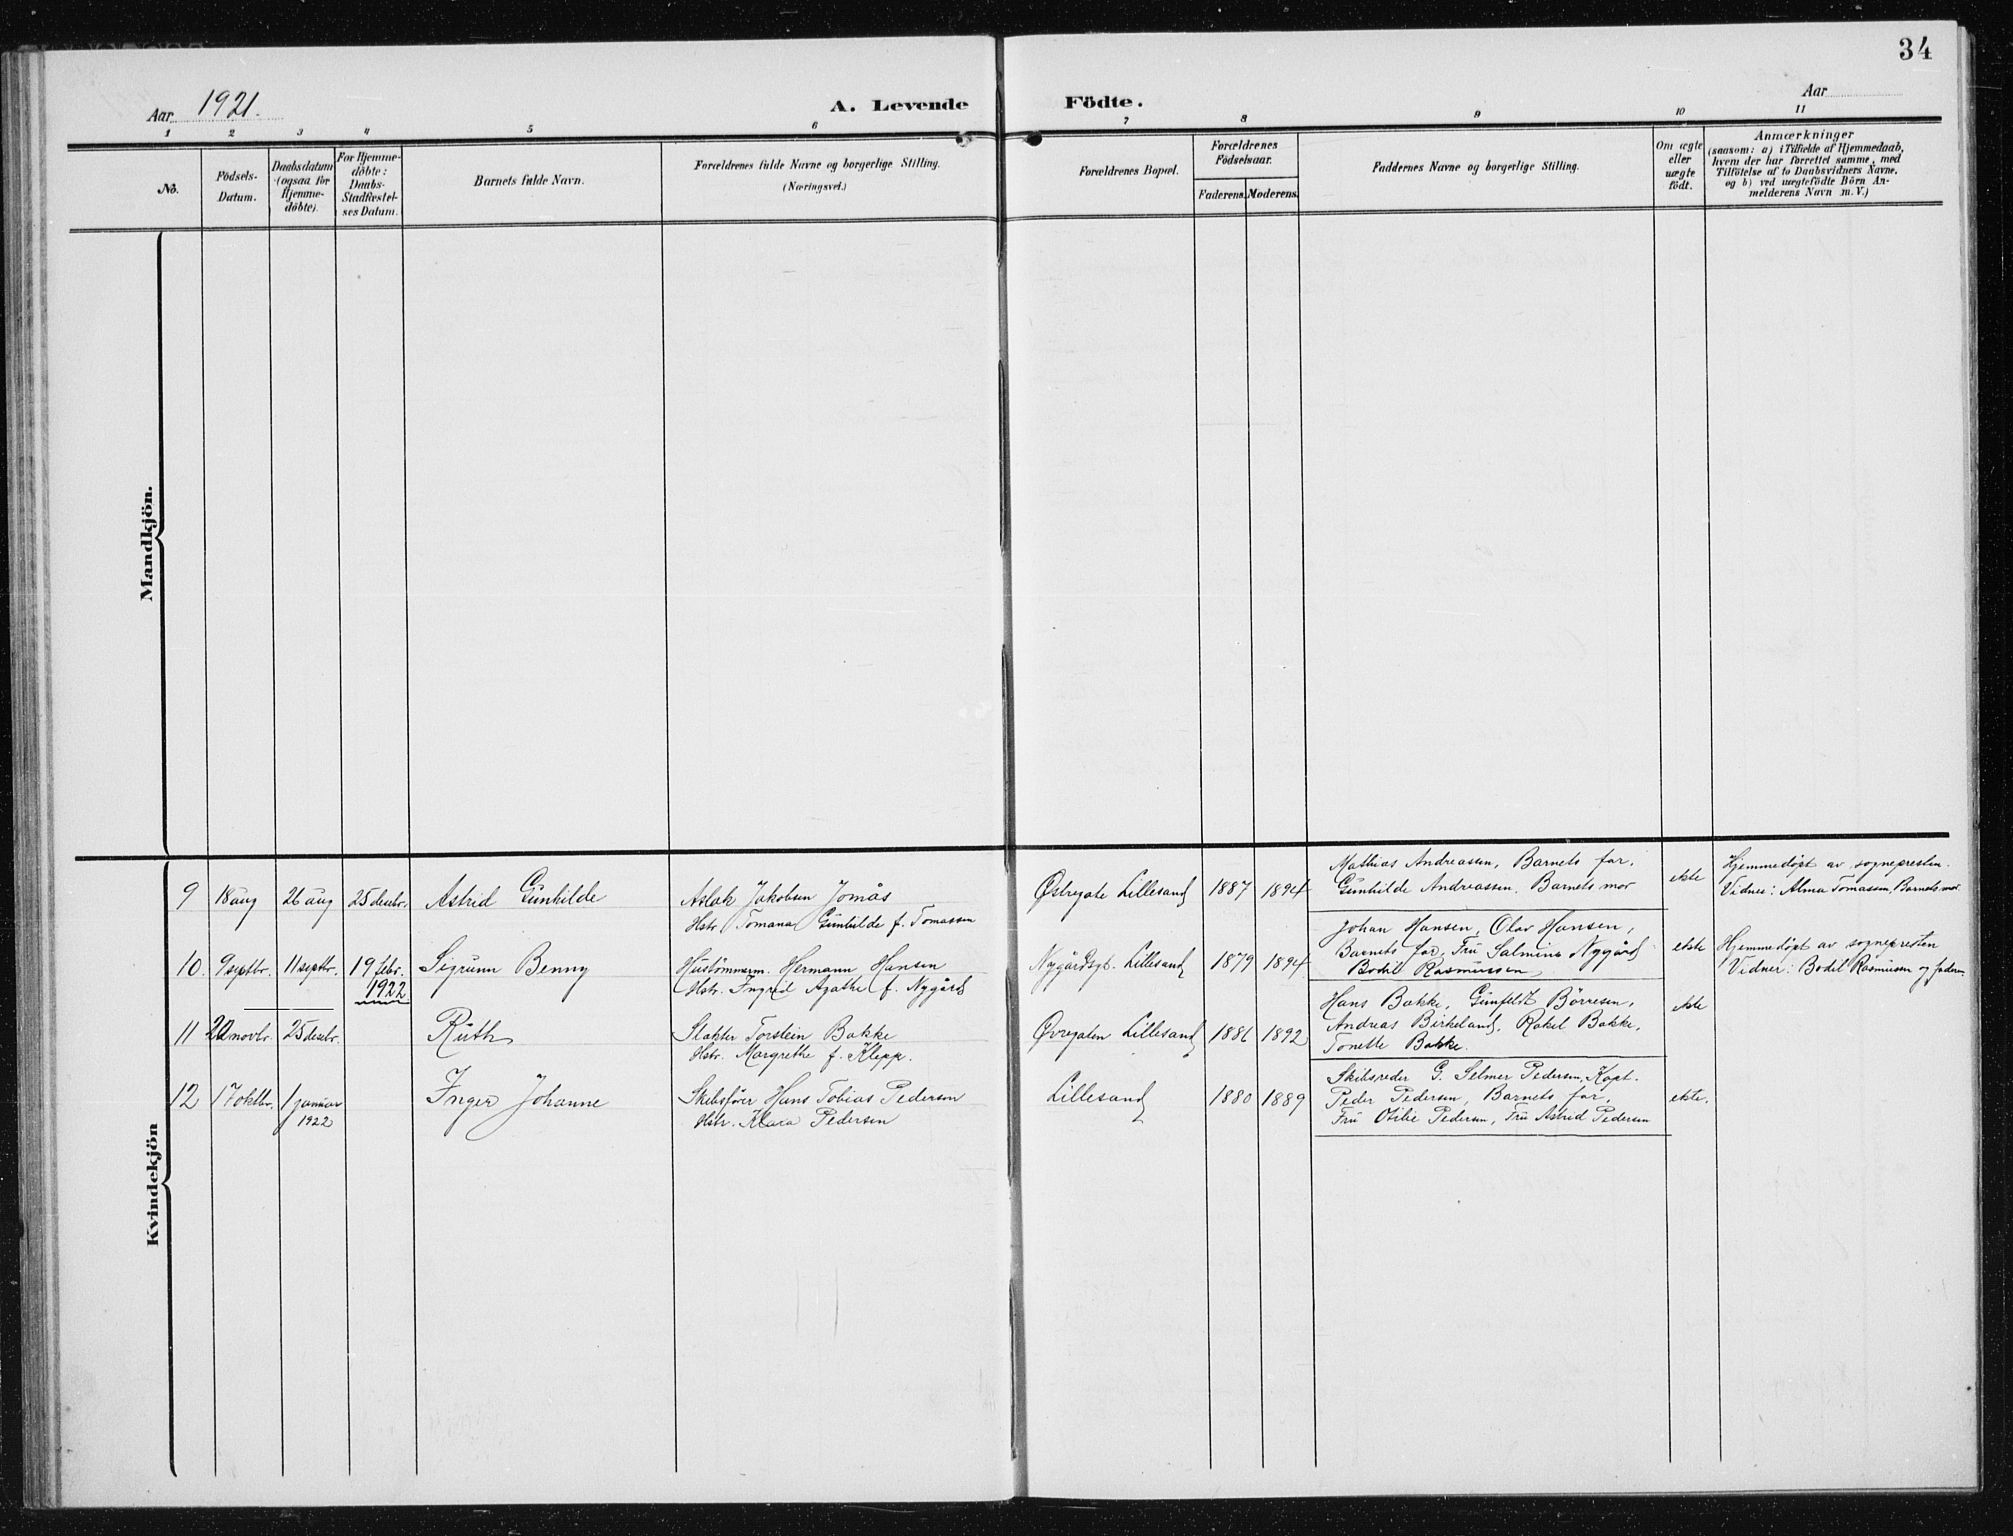 34
Aar 1921.
A. Levende Födte.
Aar
1 2 3 4 5 6 7 8 9 10 11
No.
Födsels-
Datum.
Daabsdatum
(ogsaa for
Hjemme-
döbte).
For Hjemme-
döbte:
Daabs-
Stadfæstel-
ses Datum.
Barnets fulde Navn.
Forældrenes fulde Navne og borgerlige Stilling.
(Næringsvei.)
Forældrenes Bopæl.
Forældrenes
Födselsaar.
Faderens. Moderens.
Faddernes Navne og borgerlige Stilling.
Om ægte
eller
uægte
födt.
Anmærkninger
(saasom: a) i Tilfælde af Hjemmedaab,
hvem der har forrettet samme, med
Tilföielse af to Daabsvidners Navne,
og b) ved uægtefödte Börn An-
melderens Navn m. V.)
Mandkjön.
Kvindekjön
9 18 aug 26 aug 25 desbr. Astrid Gunhilde
Aslak Jakobsen Jomås
Hstr. Tomana Gunhilde f. Tomassen
Østregate Lillesand 1887 1894
Mathias Andreassen, Barnets far,
Gunhilde Andreassen, Barnets mor
ekte
Hjemmedøpt av sognepresten.
Vidner: Alma Tomassen, Barnets mor
10. 9 septbr. 11 septbr. 19 febr.
1922
Sigrunn Benny
Hustømmerm. Hermann Hansen
Hstr. Ingrid Agathe f. Nygård
Nygårdsgt. Lillesand 1879 1894
Johan Hansen, Olav Hansen,
Barnets far, Fru Salmine Nygård
Bodil Rasmussen
ekte
Hjemmedøpt av sognepresten
Vidner: Bodil Rasmussen og
11 20 novbr. 25 desbr. Ruth
Slakter Torstein Bakke
Hstr. Margrethe f. Klepp.
Øvregaten Lillesand 1886 1892
Hans Bakke, Gunfeldt Børresen,
Andreas Birkeland, Rakel Bakke,
Tonette Bakke.
ekte
12 17 oktbr. 1 januar
1922
Inger Johanne
Skibsfører Hans Tobias Pedersen
Hstr. Klara Pedersen
Lillesand 1880 1889
Skibsreder G. Selmer Pedersen, Kapt.
Peder Pedersen, Barnets far,
Fru Otilie Pedersen, Fru Astrid Pedersen
ekte.